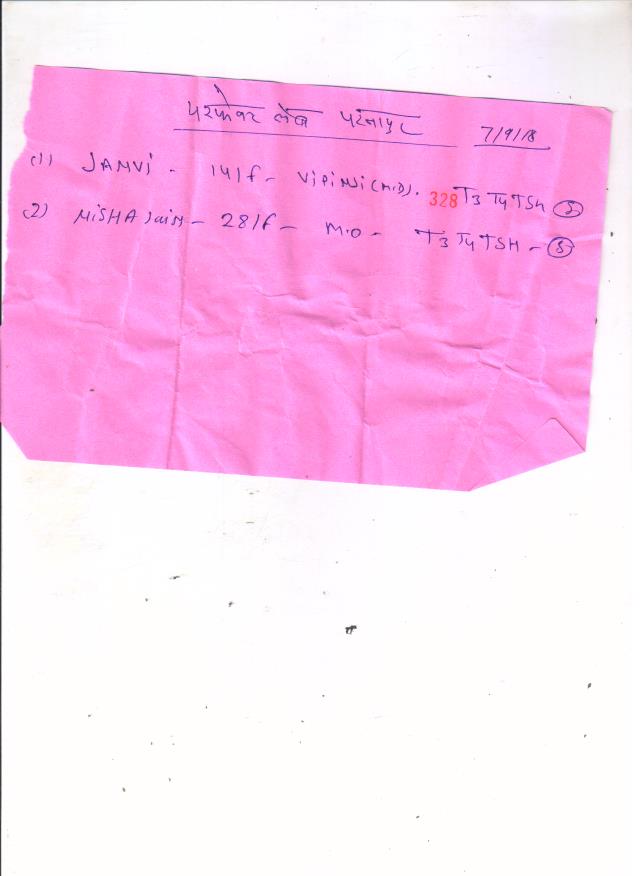 परफेक्ट लैब परतापुर 7/9/18
(1) JANVi - 14/f - ViPiNJi (M.D). 328 T3 T4 TSH (S)
(2) MiSHA JaiN - 28/f - M.O - T3 T4 TSH - (S)